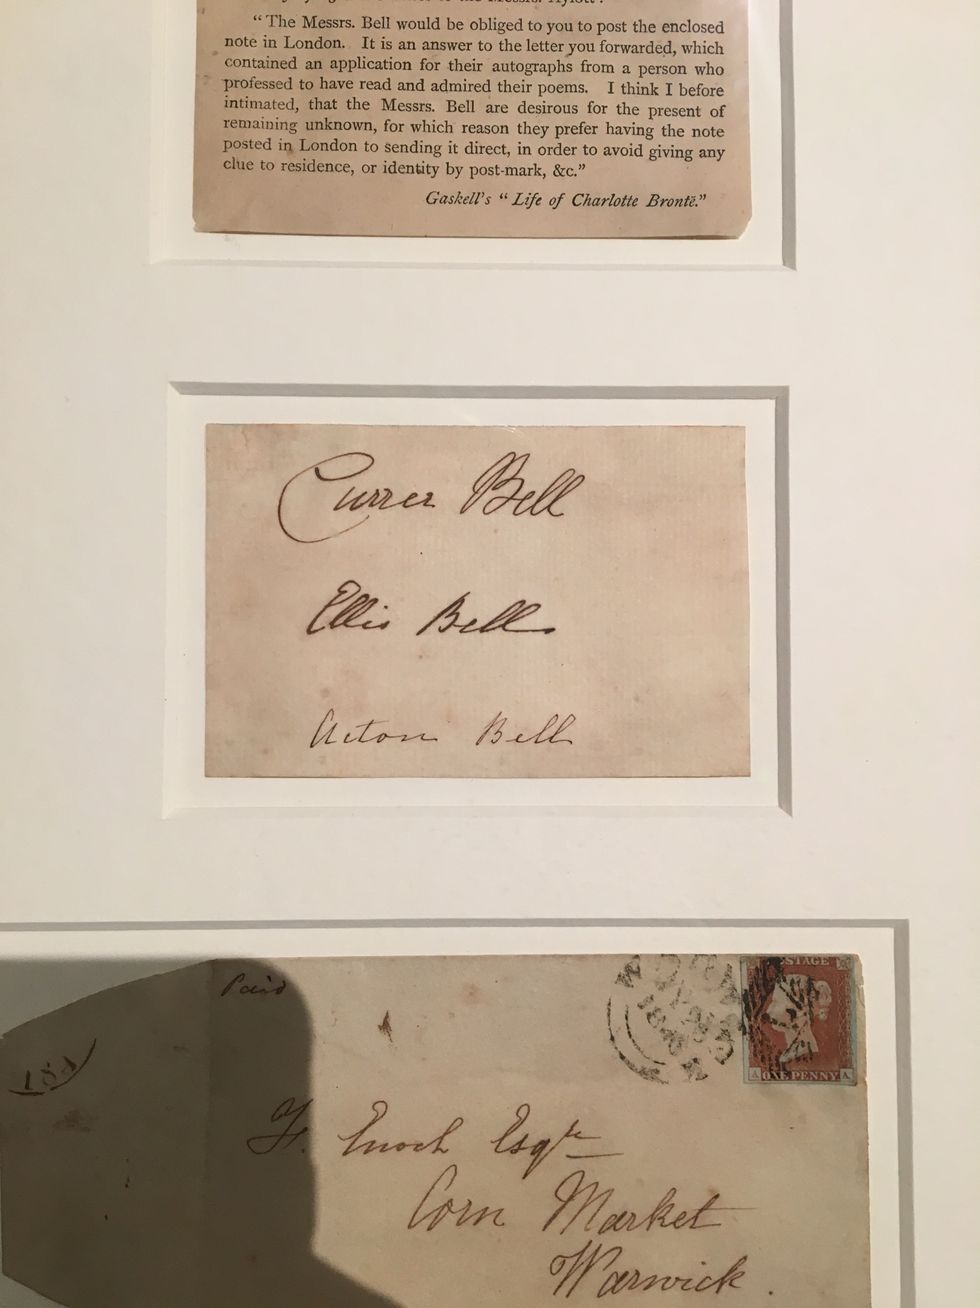 “The Messrs. Bell would be obliged to you to post the enclosed
note in London. It is an answer to the letter you forwarded, which
contained an application for their autographs from a person who
professed to have read and admired their poems. I think I before
intimated, that the Messrs. Bell are desirous for the present of
remaining unknown, for which reason they prefer having the note
posted in London to sending it direct, in order to avoid giving any
clue to residence, or identity by post-mark, &c.”
Gaskell's “Life of Charlotte Brontë.”
Currer Bell
Ellis Bell
Acton Bell
Paid
POSTAGE
A ONE PENNY A
F. Enoch Esqre
Corn Market
Warwick.